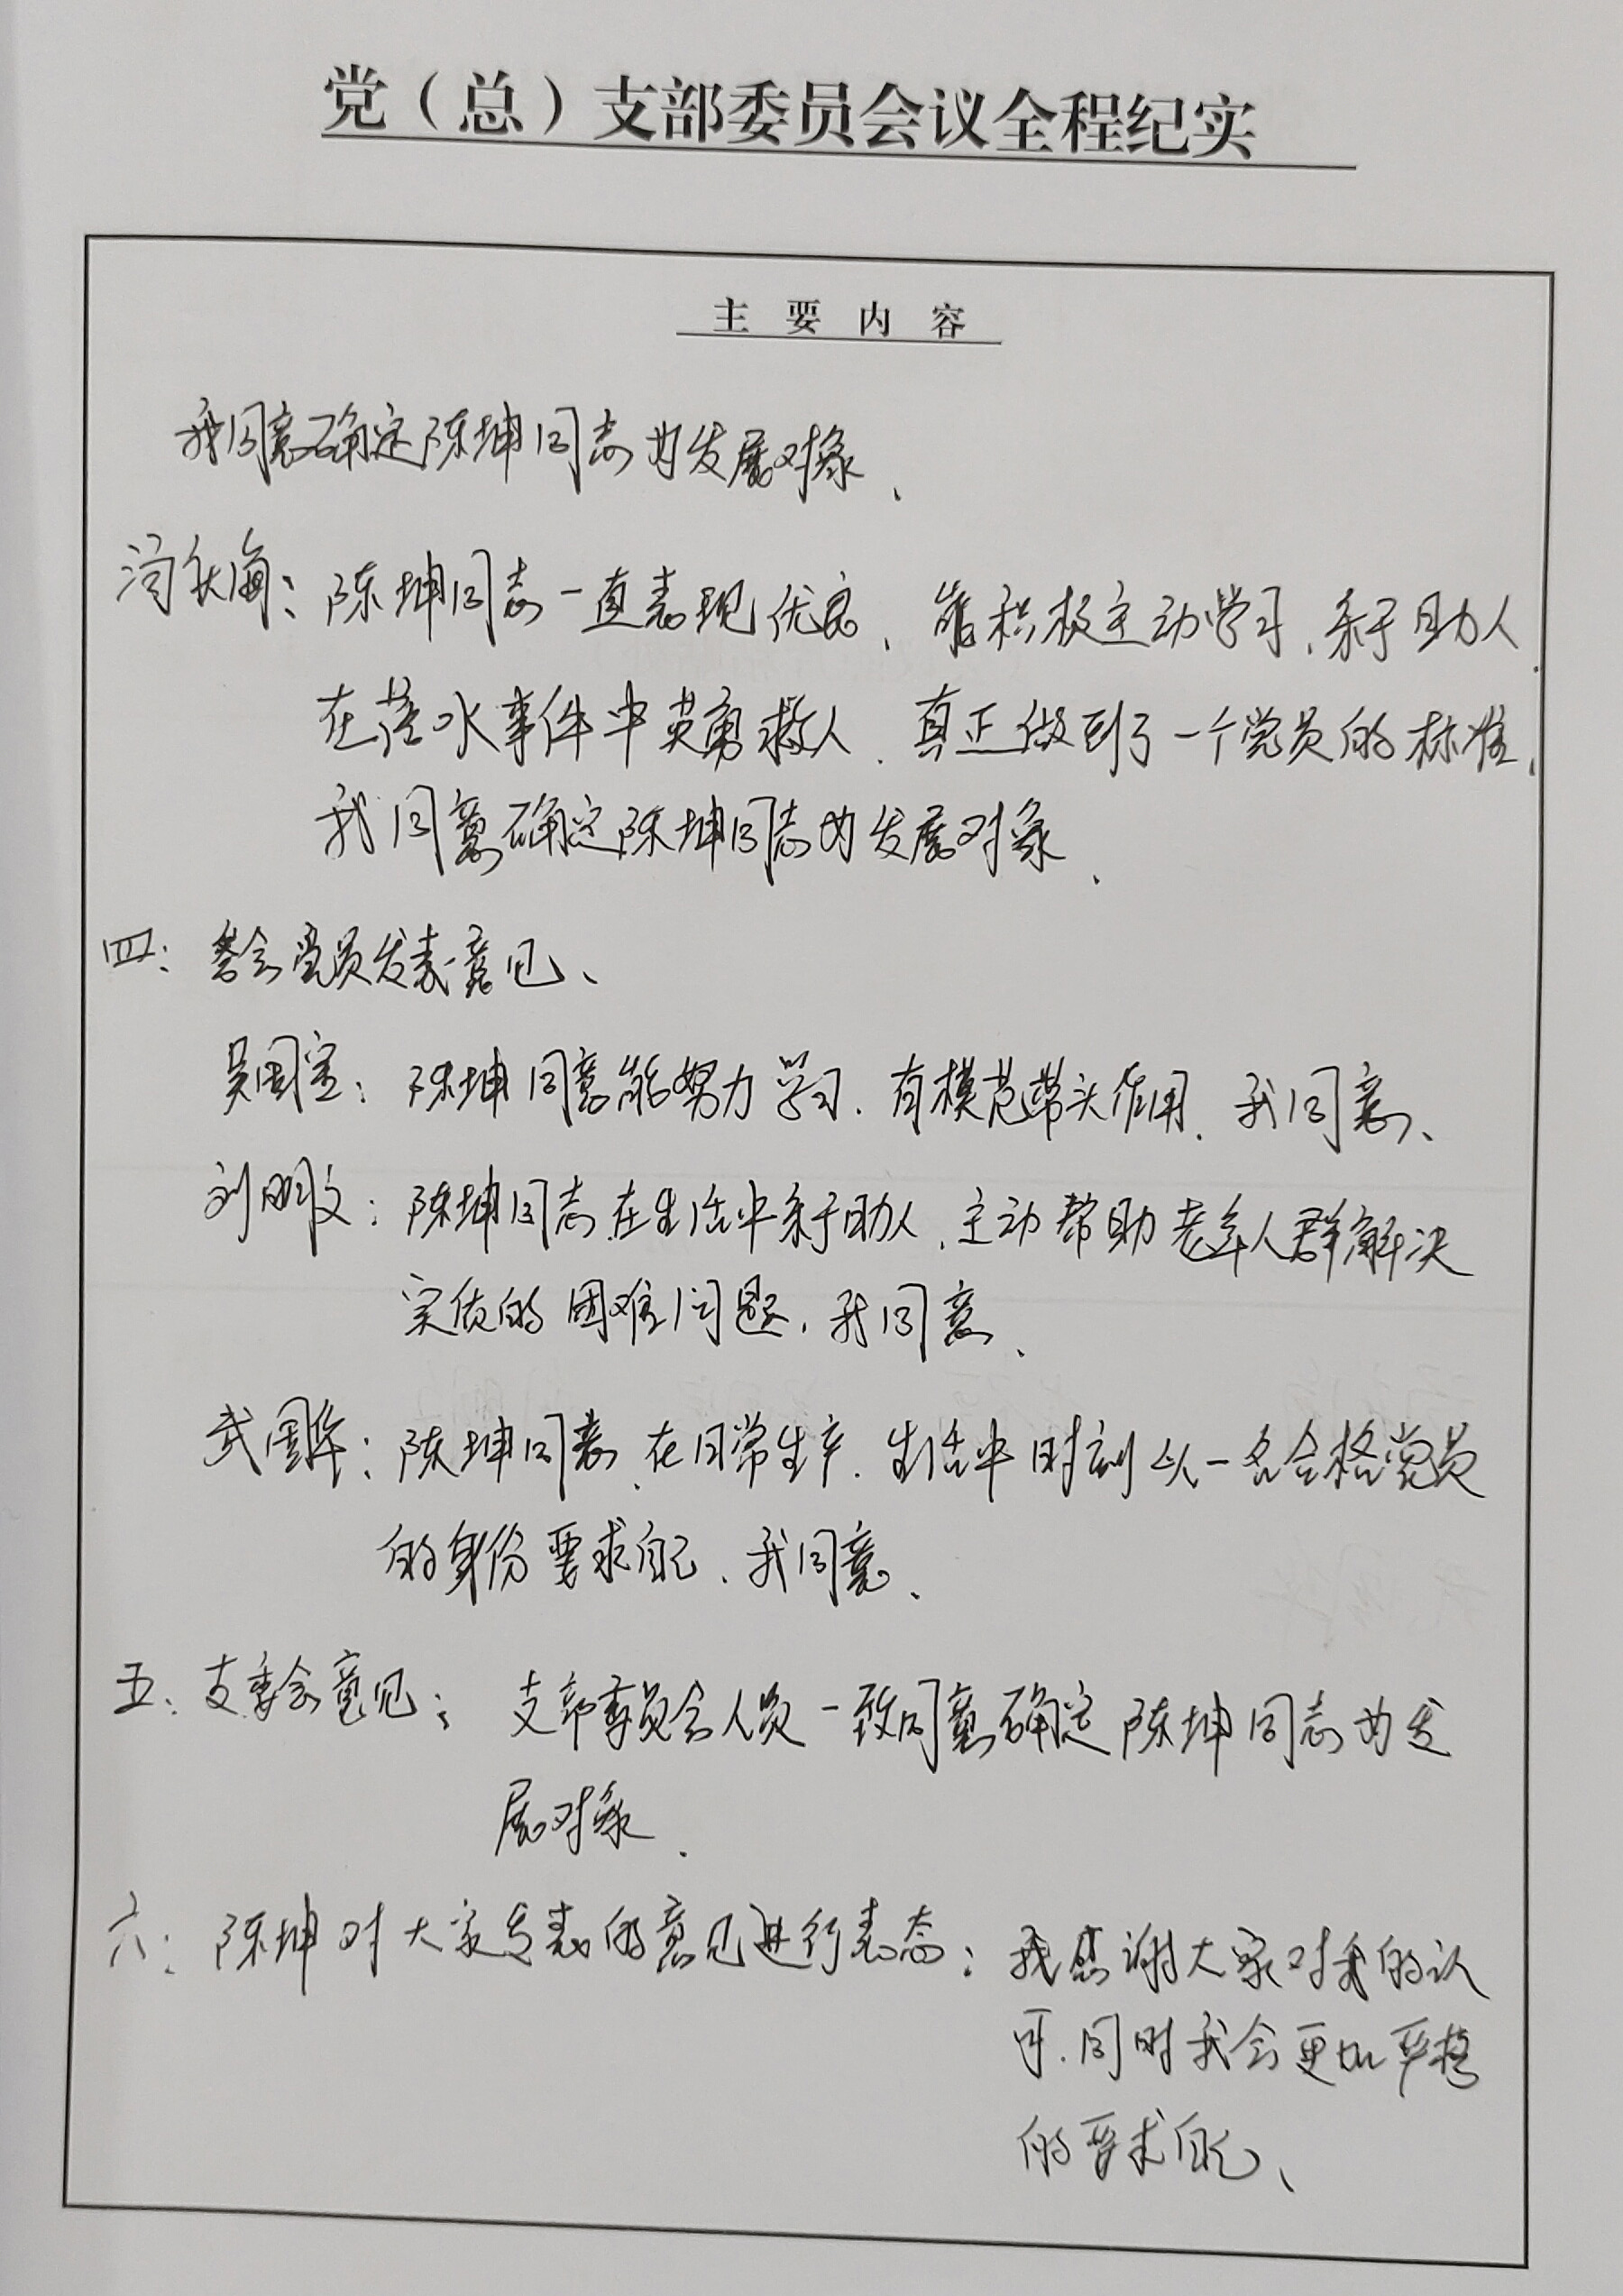 党（总）支部委员会议全程纪实
主要内容
我同意确定陈坤同志为发展对象、
海：陈坤同志一直表现优良、能积极主动学习、乐于助人、
在落水事件中英勇救人、真正做到了一个党员的标准、
我同意确定陈坤同志为发展对象、
四：参会党员发表意见、
吴国宝：陈坤同意能努力学习、有模范带头作用、我同意、
刘明文：陈坤同志在生活中乐于助人、主动帮助老年人群解决
实质的困难问题、我同意、
武国华：陈坤同意、在日常生产、生活中时刻以一名合格党员
的身份要求自己、我同意、
五、支委会意见：支部委员会人员一致同意确定陈坤同志为发
展对象、
六：陈坤对大家发表的意见进行表态：我感谢大家对我的认
可、同时我会更加严格
的要求自己、